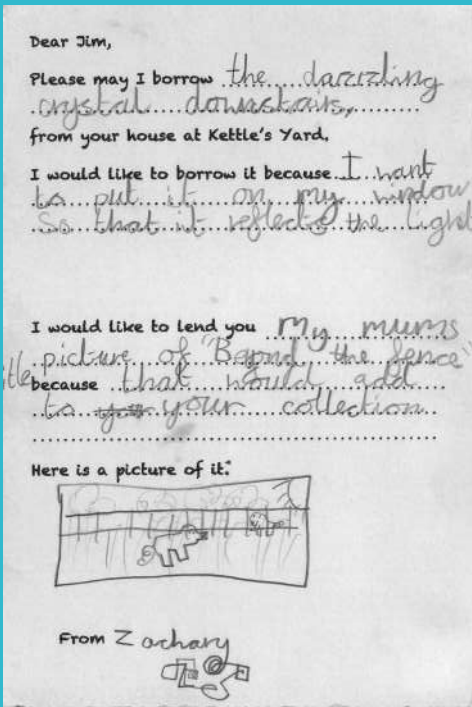 Dear Jim,
Please may I borrow the dazzling
crystal downstairs,
from your house at Kettle's Yard.
I would like to borrow it because I want
to put it on my window
So that it reflects the light
I would like to lend you My mums
picture of "Beyond the fence"
because that would add
to your collection
Here is a picture of it:
From Zachary